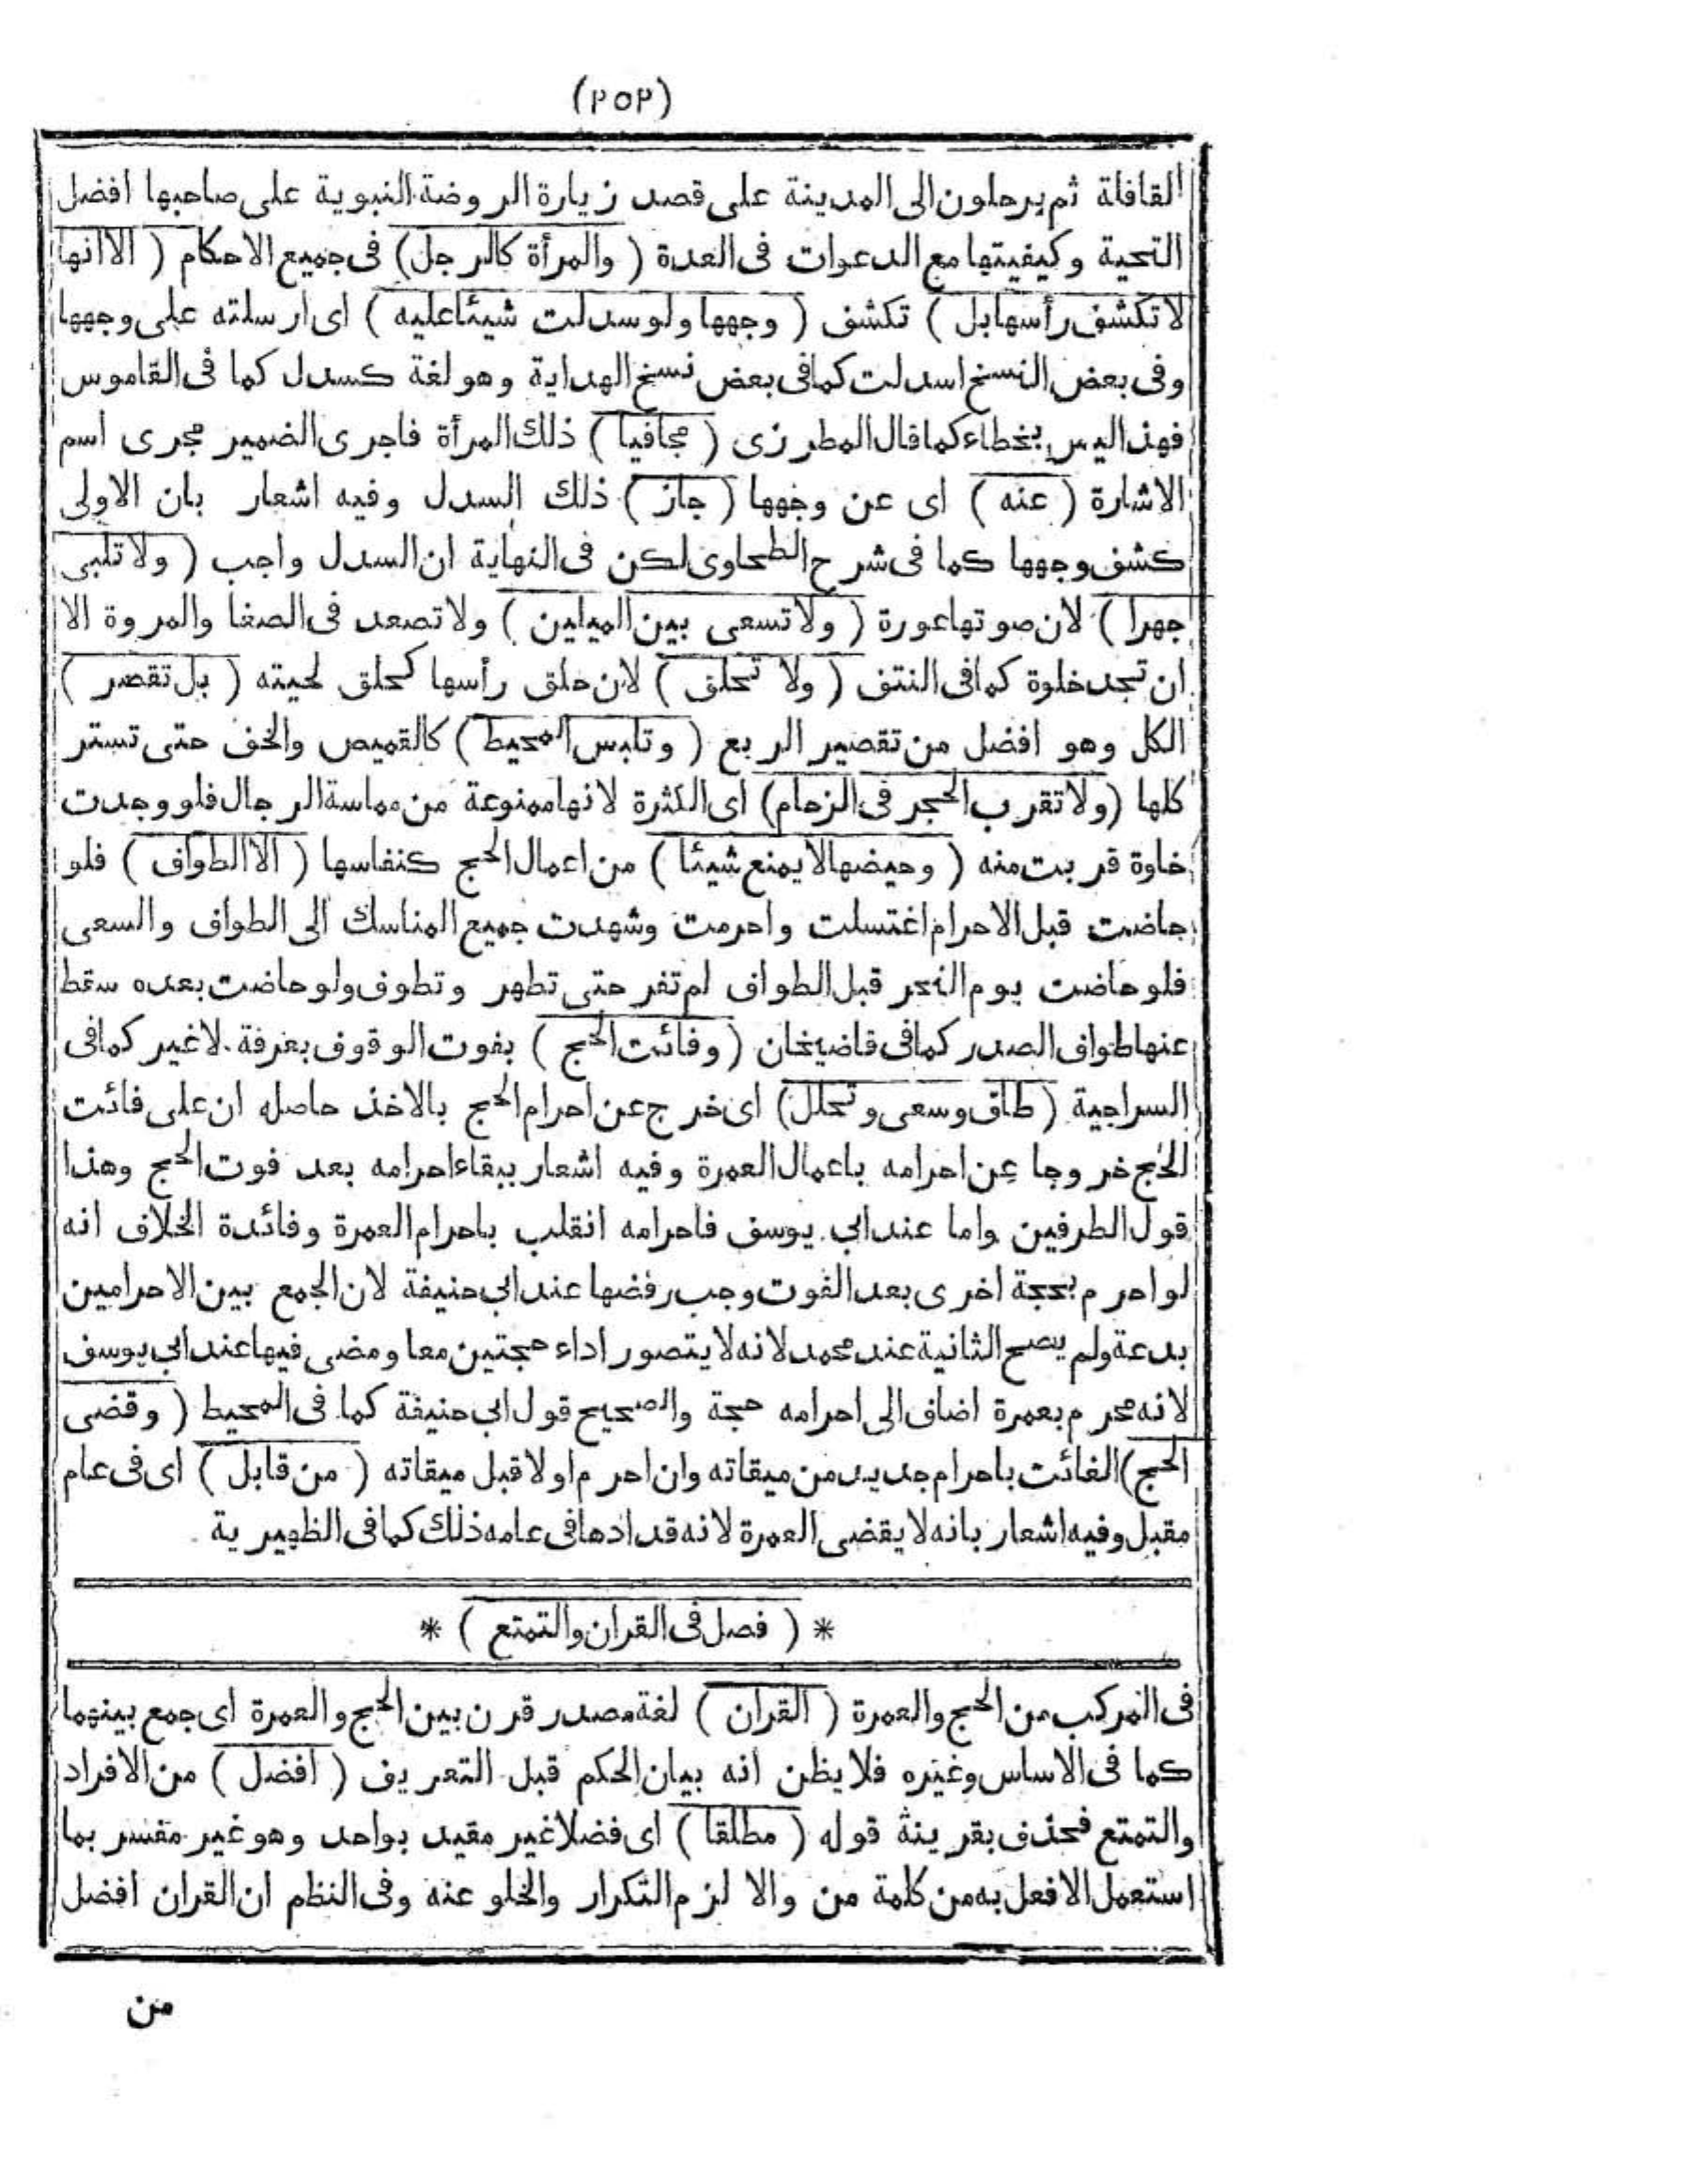 (٢٥٢)
القافلة ثم يرحلون الى المدينة على قصد زيارة الروضة النبوية على صاحبها افضل
التحية وكيفيتها مع الدعوات فى العدة (والمرأة كالرجل) فى جميع الاحكام (الا انها
لا تكشف رأسها بل) تكشف (وجهها ولو سدلت شيئا عليه) اى ارسلته على وجهها
وفى بعض النسخ اسدلت كما فى بعض نسخ الهداية وهو لغة كسدل كما فى القاموس
فهذا ليس بخطاء كما قال المطرزى (مجافيا) ذلك المرأة فاجرى الضمير مجرى اسم
الاشارة (عنه) اى عن وجهها (جاز) ذلك السدل وفيه اشعار بان الاولى
كشف وجهها كما فى شرح الطحاوى لكن فى النهاية ان السدل واجب (ولا تلبى
جهرا) لان صوتها عورة (ولا تسعى بين الميلين) ولا تصعد فى الصفا والمروة الا
ان تجد خلوة كما فى النتف (ولا تحلق) لان حلق رأسها كحلق لحيته (بل تقصر)
الكل وهو افضل من تقصير الربع (وتلبس المخيط) كالقميص والخف حتى تستر
كلها (ولا تقرب الحجر فى الزحام) اى الكثرة لانها ممنوعة من مماسة الرجال فلو وجدت
خلوة قربت منه (وحيضها لا يمنع شيئا) من اعمال الحج كنفاسها (الا الطواف) فلو
حاضت قبل الاحرام اغتسلت واحرمت وشهدت جميع المناسك الى الطواف والسعى
فلو حاضت يوم النحر قبل الطواف لم تفر حتى تطهر وتطوف ولو حاضت بعده سقط
عنها طواف الصدر كما فى قاضيخان (وفائت الحج) بفوت الوقوف بعرفة لا غير كما فى
السراجية (طاف وسعى وتحلل) اى خرج عن احرام الحج بالاخذ حاصله ان على فائت
الحج خروجا عن احرامه باعمال العمرة وفيه اشعار ببقاء احرامه بعد فوت الحج وهذا
قول الطرفين واما عند ابى يوسف فاحرامه انقلب باحرام العمرة وفائدة الخلاف انه
لو احرم بحجة اخرى بعد الفوت وجب رفضها عند ابى حنيفة لان الجمع بين الاحرامين
بدعة ولم يصح الثانية عند محمد لانه لا يتصور اداء حجتين معا ومضى فيها عند ابى يوسف
لانه محرم بعمرة اضاف الى احرامه حجة والصحيح قول ابى حنيفة كما فى المحيط (وقضى
الحج) الفائت باحرام جديد من ميقاته وان احرم اولا قبل ميقاته (من قابل) اى فى عام
مقبل وفيه اشعار بانه لا يقضى العمرة لانه قد ادها فى عامه ذلك كما فى الظهيرية
* (فصل فى القران والتمتع) *
فى المركب من الحج والعمرة (القران) لغة مصدر قرن بين الحج والعمرة اى جمع بينهما
كما فى الاساس وغيره فلا يظن انه بيان الحكم قبل التعريف (افضل) من الافراد
والتمتع فحذف بقرينة قوله (مطلقا) اى فضلا غير مقيد بواحد وهو غير مفسر بما
استعمل الافعل به من كلمة من والا لزم التكرار والخلو عنه وفى النظم ان القران افضل
من